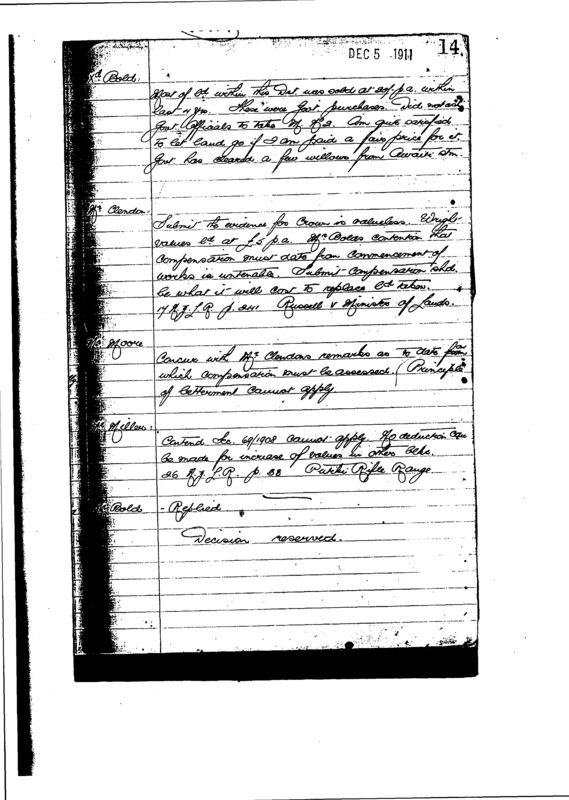 DEC 5 1911
14
Xd Bold.
Most of ld. within this Dist was sold at £4 p.a. within
last 4 yrs. These were Govt purchases. Did not ask
Govt Officials to take Am quite satisfied
to let land go if I am paid a fair price for it.
Govt has cleared a few willows from Stm.
Mr Clendon.
Submit the evidence for Crown is valueless. Wright
values ld at £5 p.a. Mr Bolds contention that
compensation must date from commencement of
works is untenable. Submit compensation shd.
be what it will cost to replace ld taken.
17 N.Z.L.R. p. 241 Russell v Minister of Lands.
Mr Moore
Concur with Mr Clendons remarks as to date for from
which compensation must be assessed. (Principle
of betterment cannot apply
Mr Miller:
Contend Sec. 69/1908 cannot apply. No deduction can
be made for increase of values in other blks.
26 N.Z.L.R. p. Rifle Range.
Mr Bold
- Replied
Decision reserved.